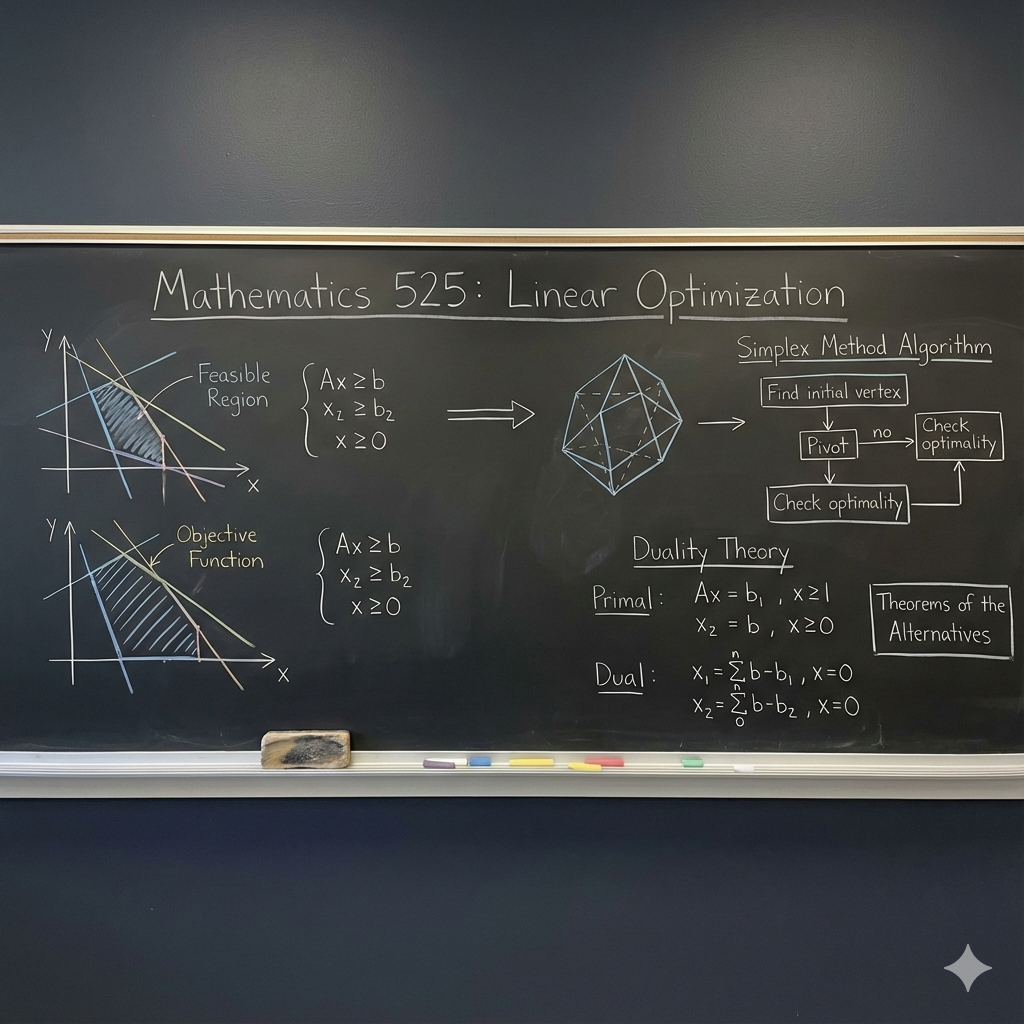 Mathematics 525: Linear Optimization
Y
Feasible
Region
X
Ax ≥ b
x₂ ≥ b₂
x ≥ 0
Simplex Method Algorithm
Find initial vertex
Pivot
no
Check
optimality
Check optimality
Y
Objective
Function
X
Ax ≥ b
x₂ ≥ b₂
x ≥ 0
Duality Theory
Primal: Ax = b₁ , x ≥ 1
x₂ = b , x ≥ 0
Dual: x₁ = n Σ b - b₁ , x = 0
x₂ = n Σ 0 b - b₂ , x = 0
Theorems of the
Alternatives